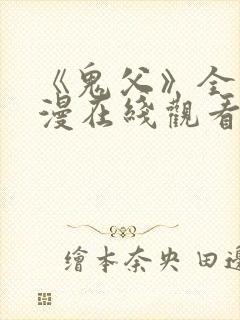 《鬼父》全
漫在綫觀看
繪本奈央 田邊